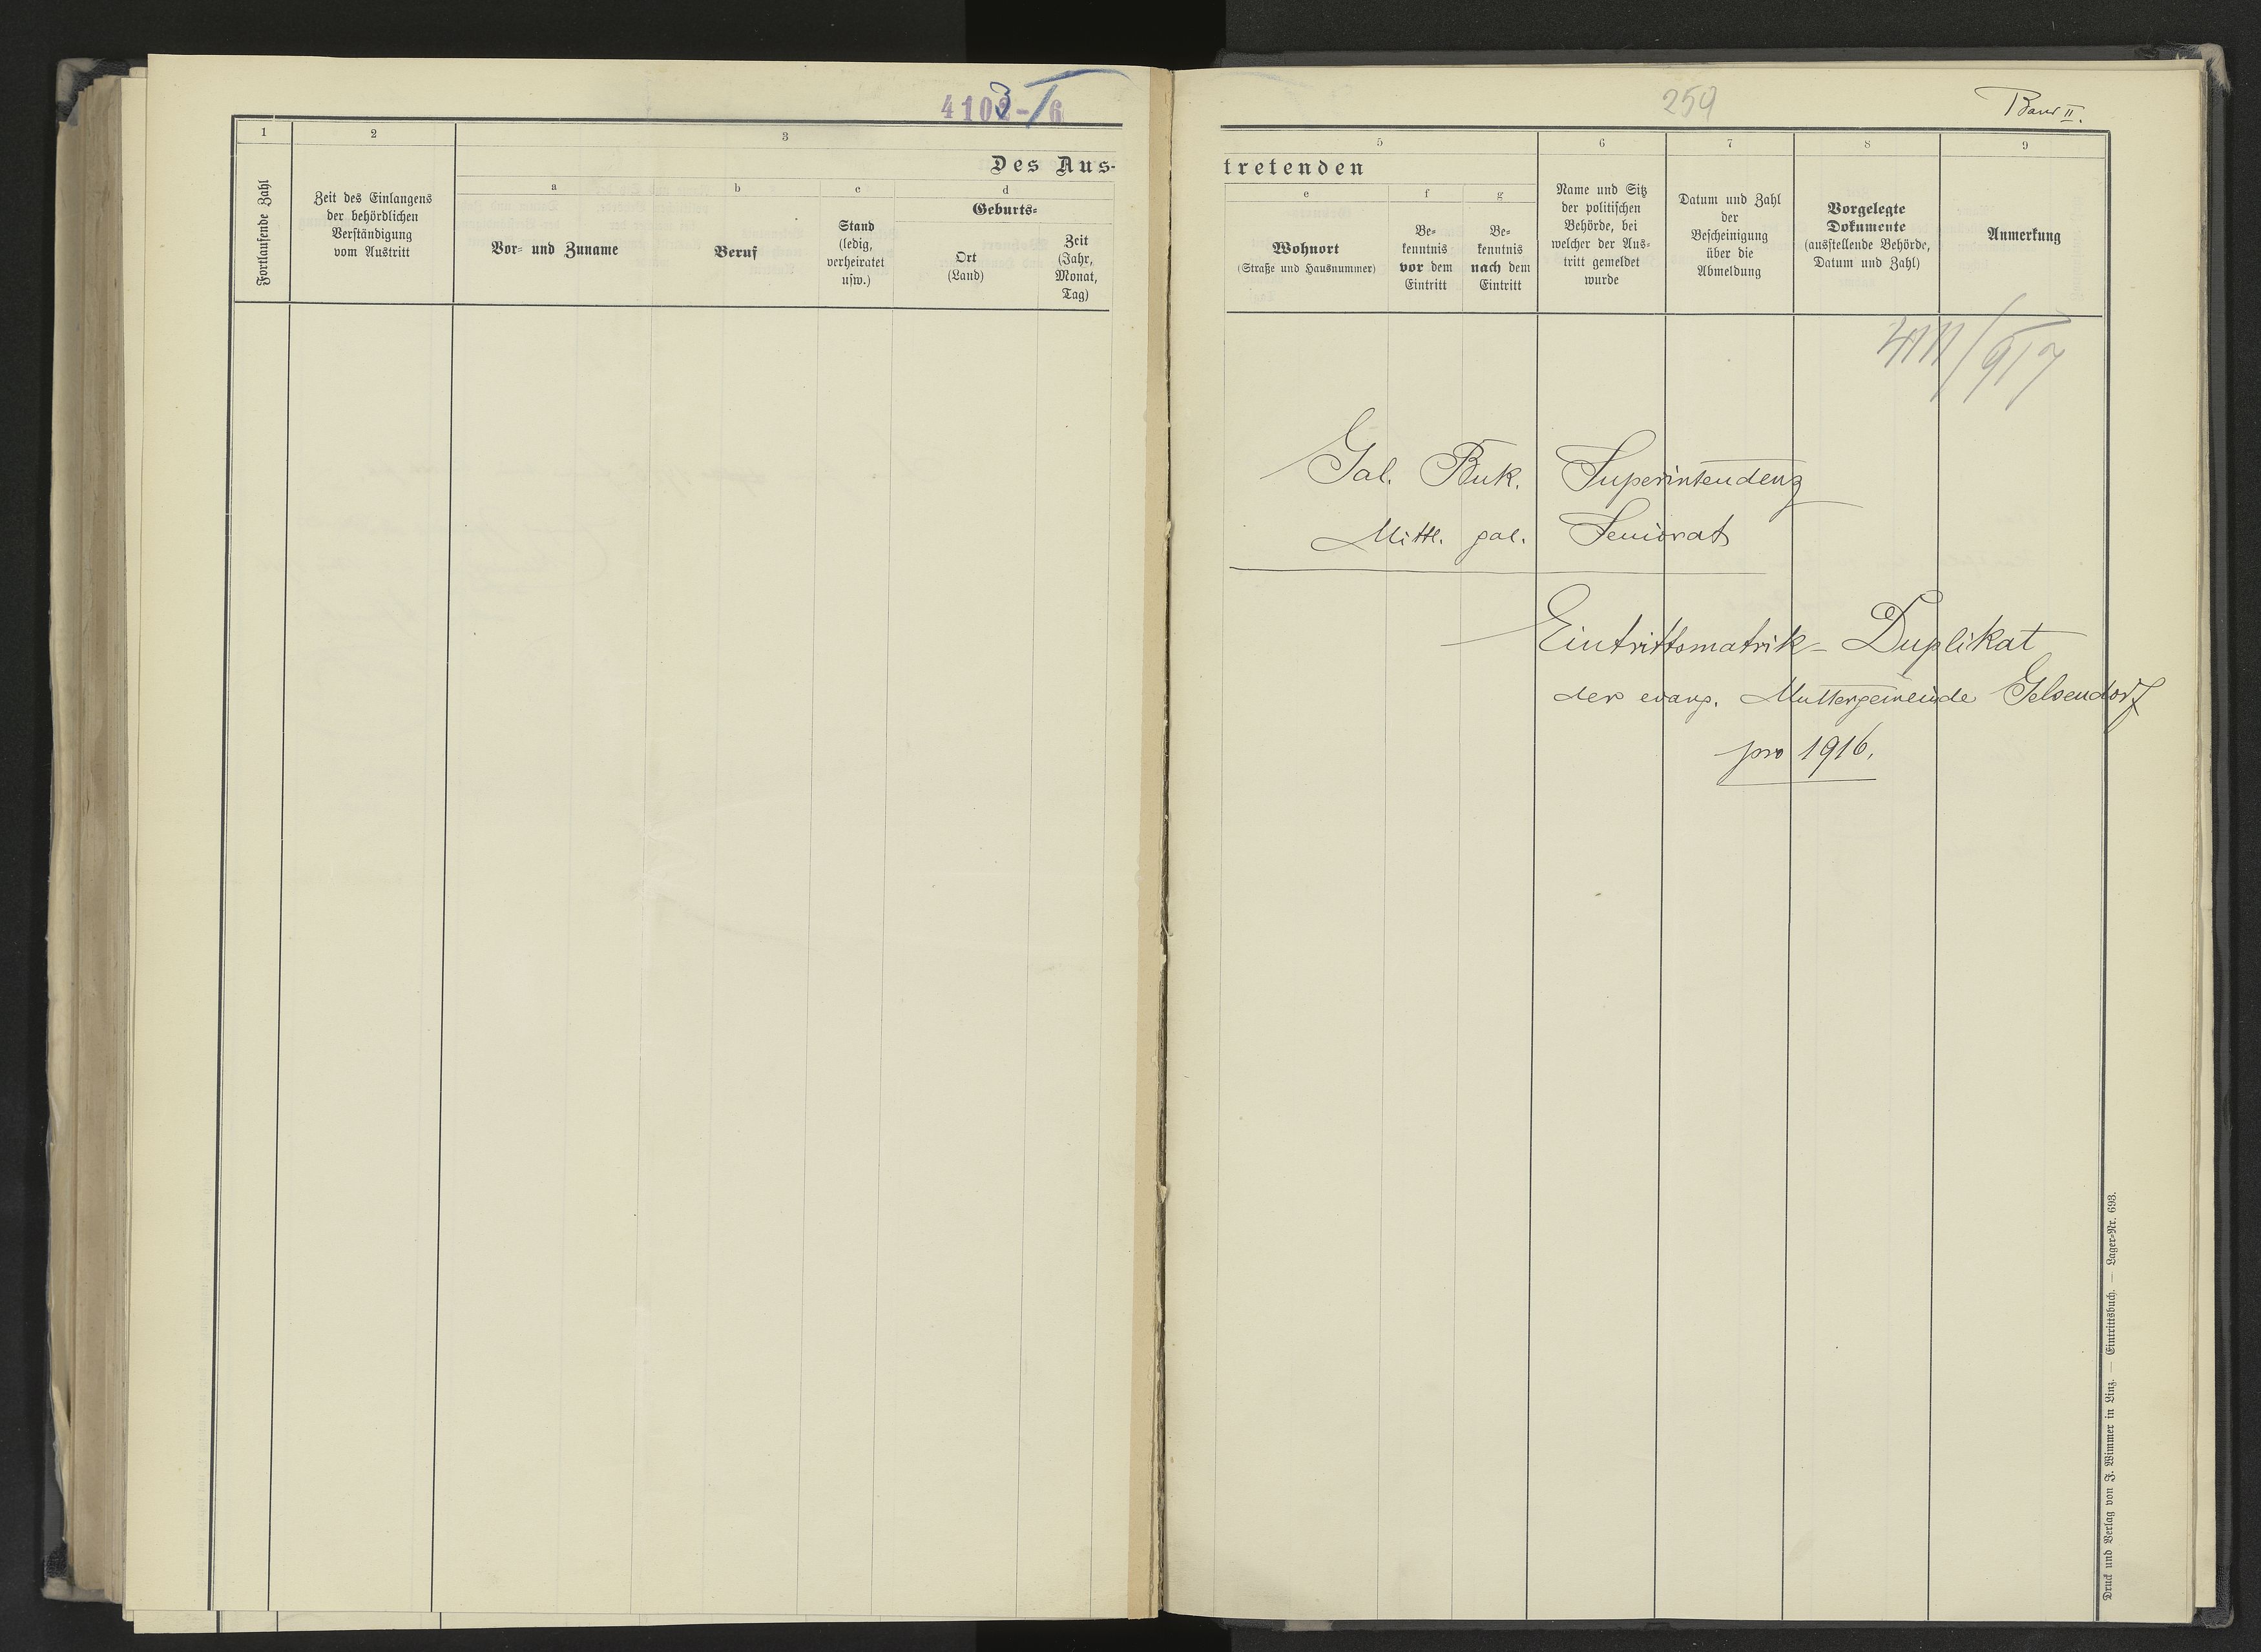 4102-16
3 I
1
2
3
Des Aus-
a
b
c
d
Fortlaufende Zahl
Zeit des Einlangens
der behördlichen
Verständigung
vom Austritt
Vor- und Zuname
Beruf
Stand
(ledig,
verheiratet
usw.)
Geburts-
Ort
(Land)
Zeit
(Jahr,
Monat,
Tag)
259
Band II.
5
6
7
8
9
tretenden
e
f
g
Wohnort
(Straße und Hausnummer)
Be-
kenntnis
vor dem
Eintritt
Be-
kenntnis
nach dem
Eintritt
Name und Sitz
der politischen
Behörde, bei
welcher der Aus-
tritt gemeldet
wurde
Datum und Zahl
der
Bescheinigung
über die
Abmeldung
Vorgelegte
Dokumente
(ausstellende Behörde,
Datum und Zahl)
Anmerkung
4111/917
Gal. Buk. Superintendenz
Mittl. gal. Seniorat
Eintrittsmatrik-Duplikat
der evang. Muttergemeinde Gelsendorf
pro 1916.
Druck und Verlag von J. Wimmer in Linz. — Eintrittsbuch. — Lager-Nr. 693.